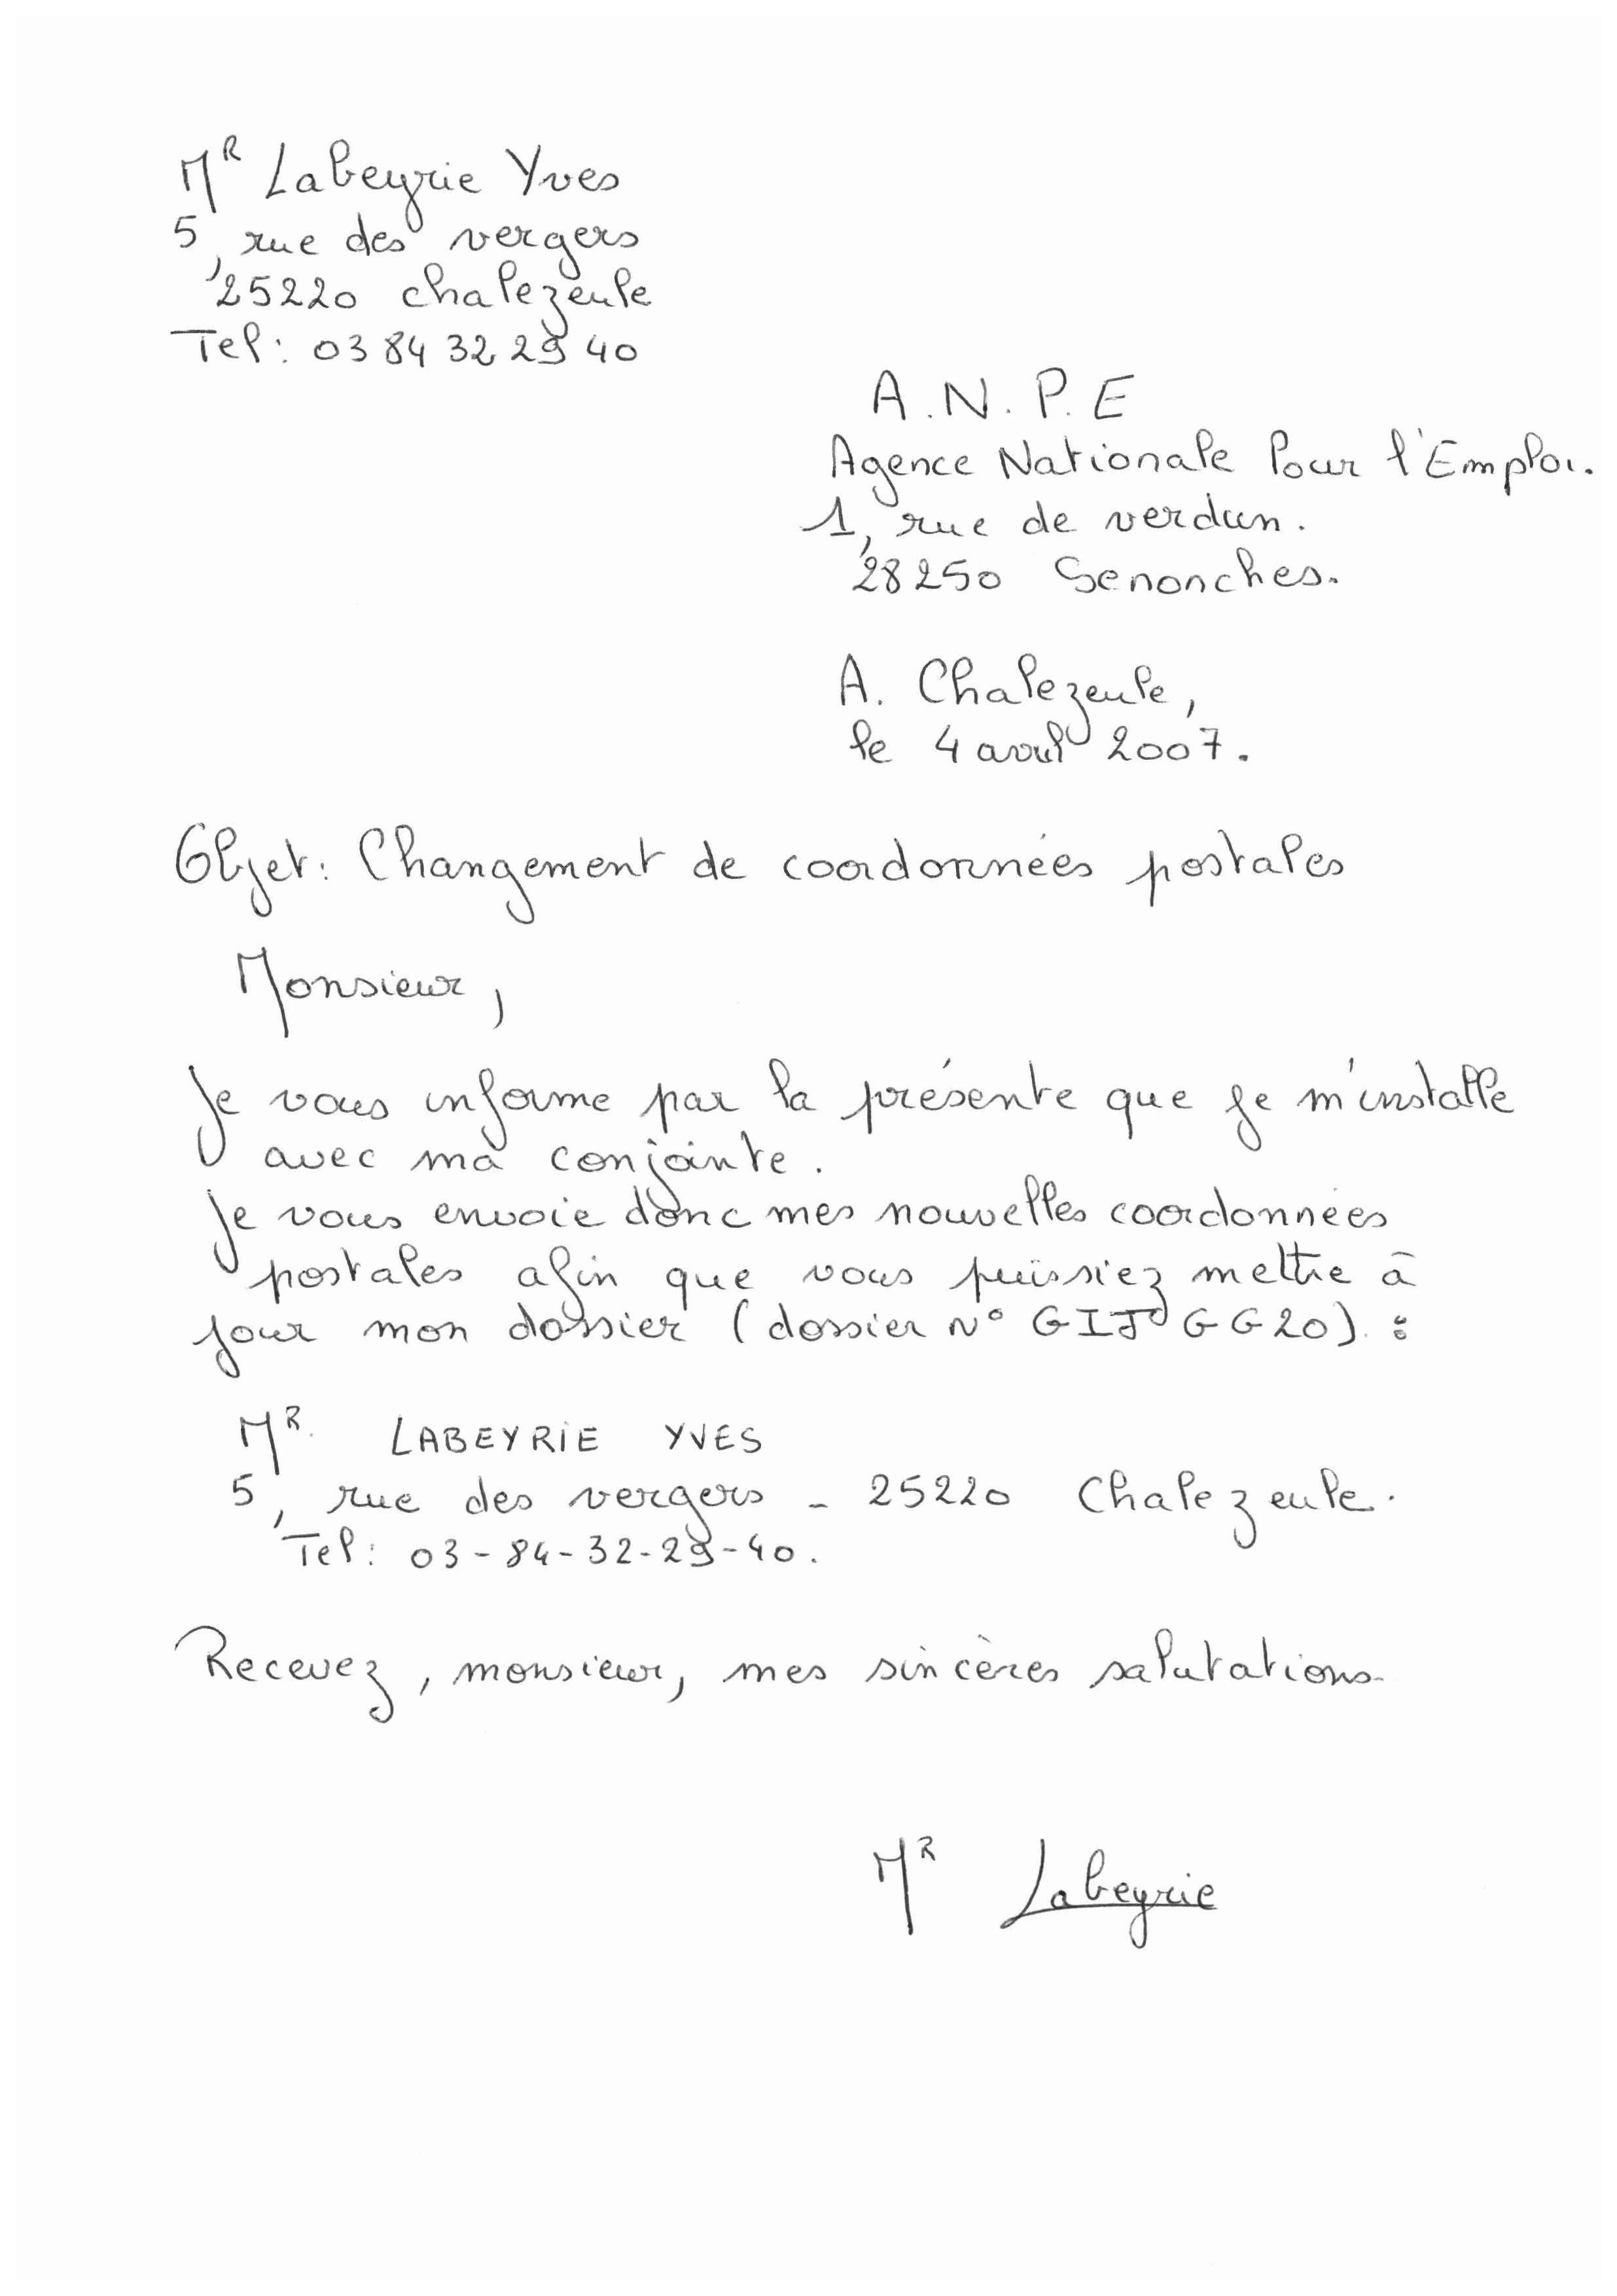 Mr Labeyrie Yves
5, rue des vergers
25220 chalezeule
Tel: 03 84 32 29 40
A.N.P.E
Agence Nationale Pour l'Emploi.
1, rue de verdun.
28250 Senonches.
A. Chalezeule,
le 4 avril 2007.
Objet: Changement de coordonnées postales
Monsieur,
Je vous informe par la présente que je m'installe
avec ma conjointe.
Je vous envoie donc mes nouvelles coordonnées
postales afin que vous puissiez mettre à
jour mon dossier (dossier N° GIJGG20) :
MR. LABEYRIE YVES
5, rue des vergers - 25220 Chalezeule.
Tel: 03-84-32-29-40.
Recevez, monsieur, mes sincères salutations.
MR Labeyrie